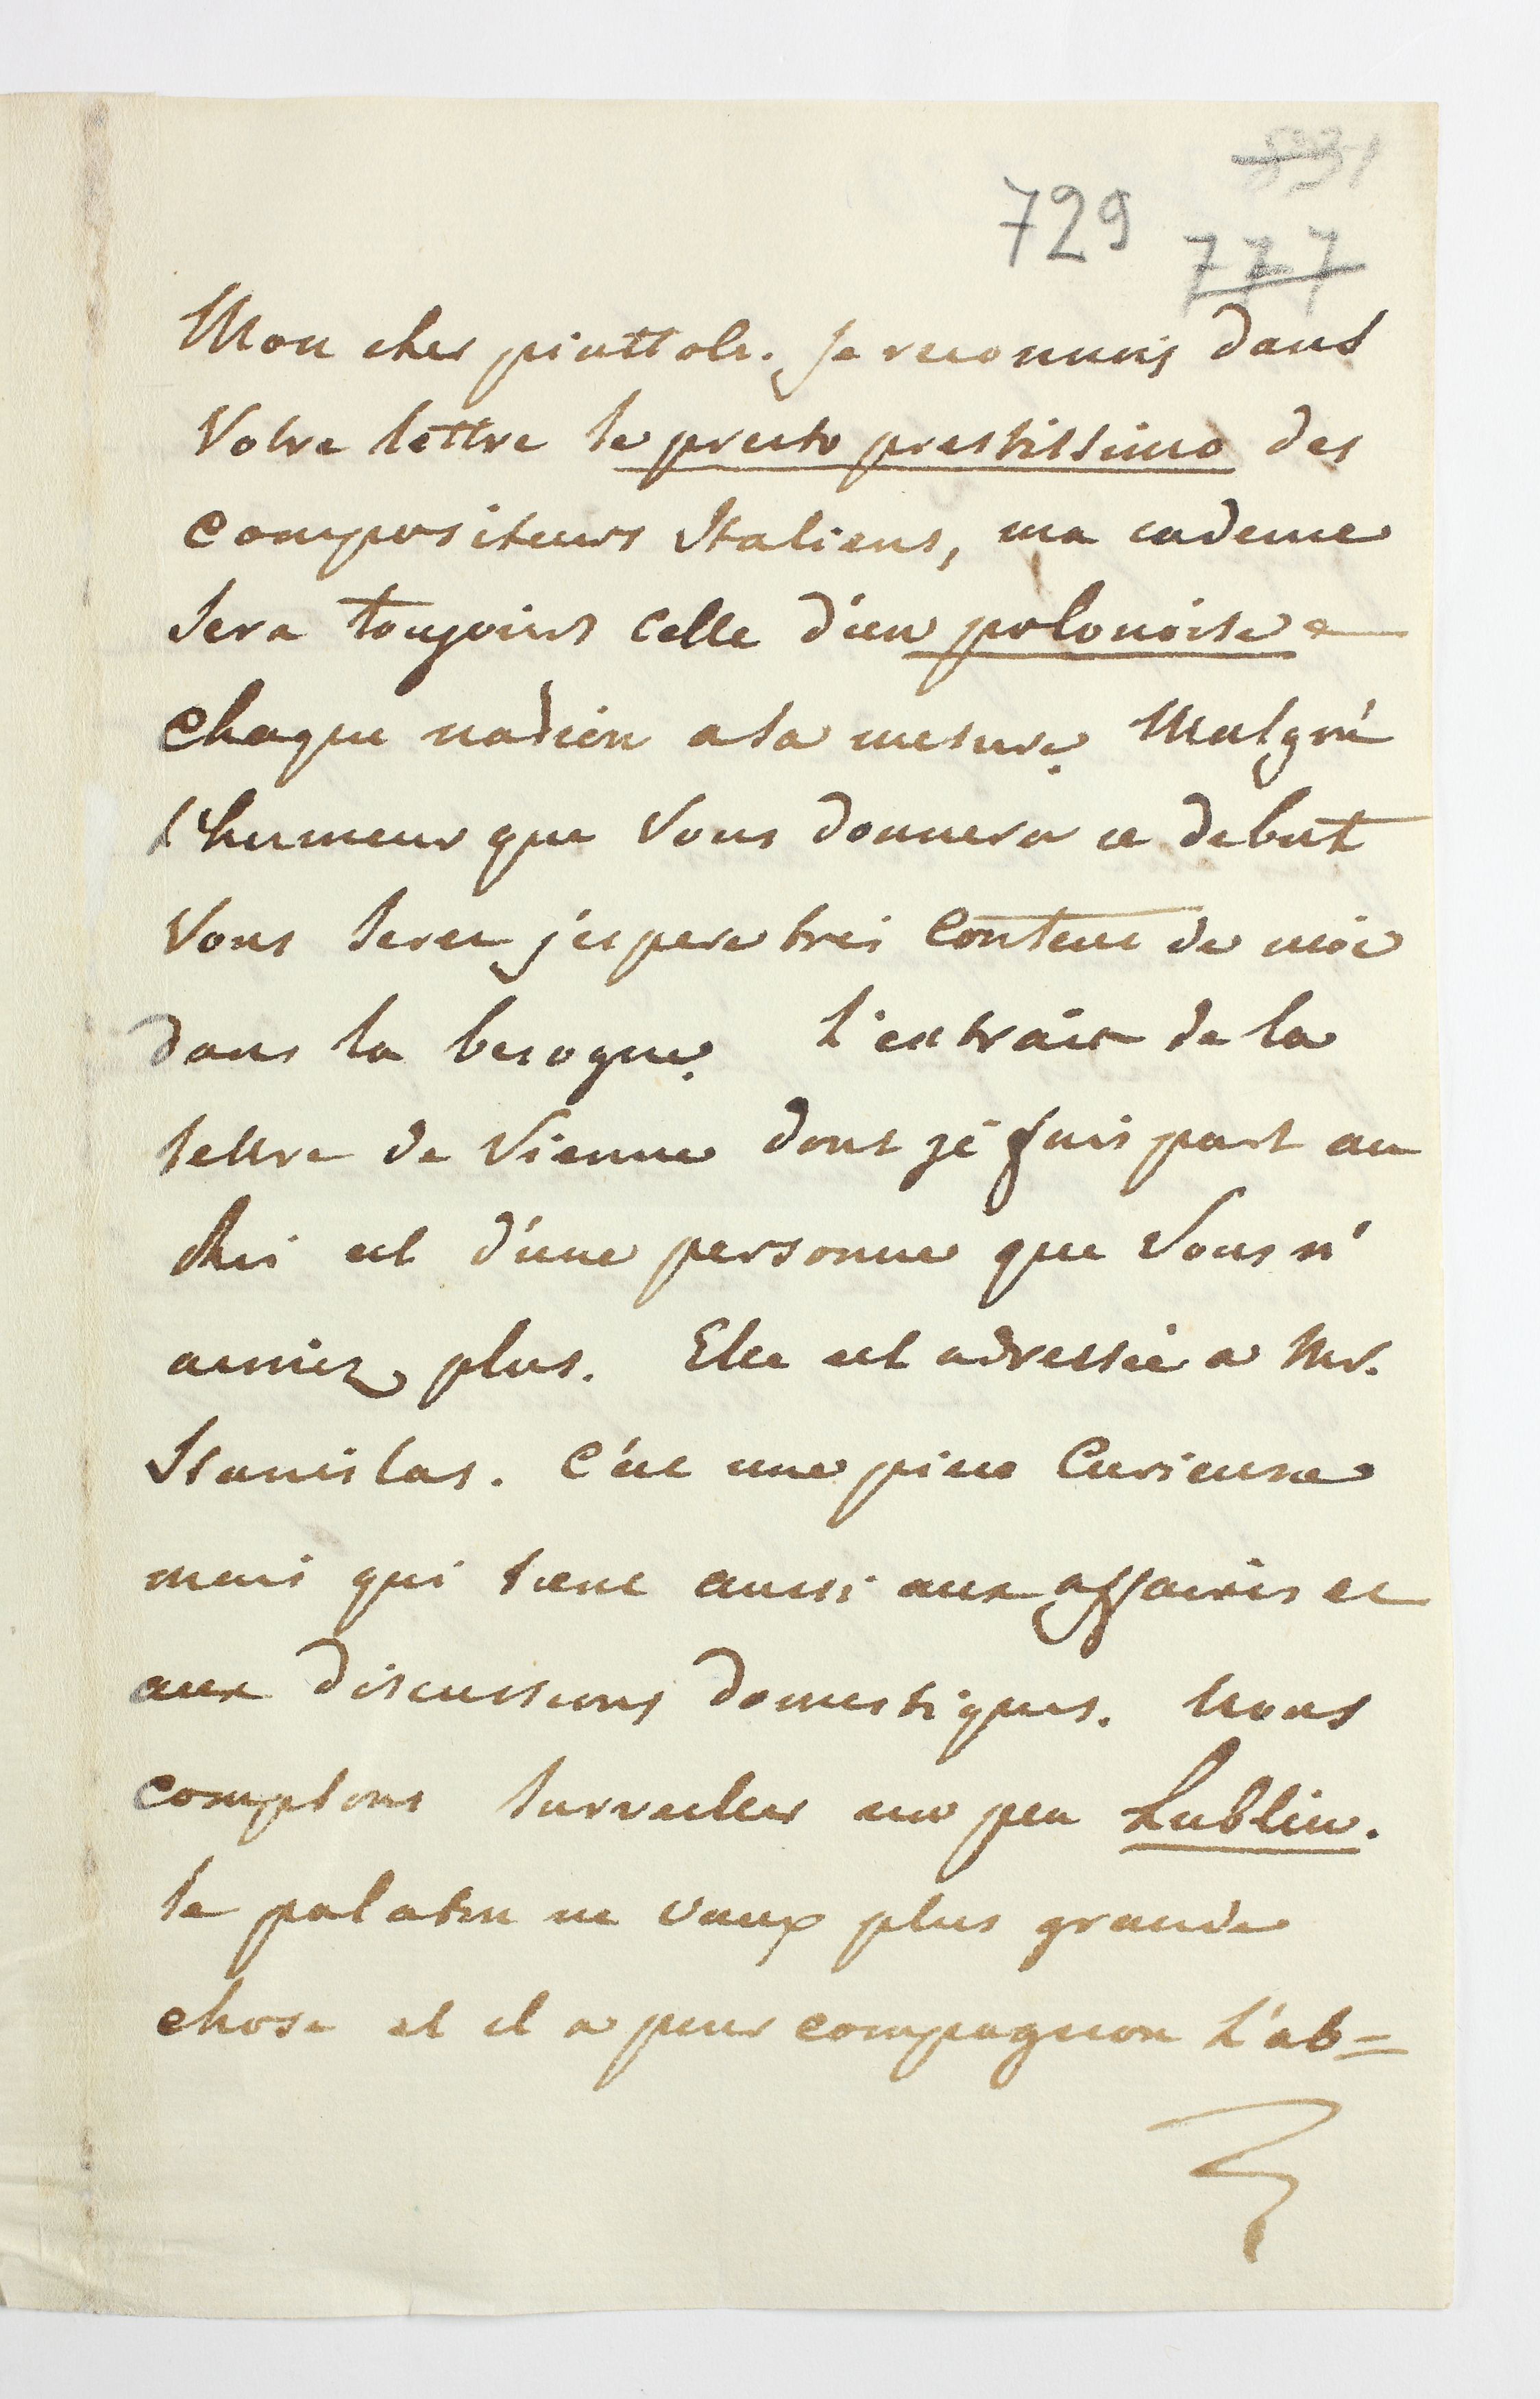 729
777
Mon cher piattoli. Je reconnois dans
Votre lettre le presto prestissimo des
compositeurs Italiens, ma cadence
sera toujours celle d'un polonoise
chaque nation a sa mesure. Malgré
l'humeur que Vous donnera ce debut
Vous serez j'espere tres content de moi
dans la besogne. L'extrait de la
lettre de Vienne dont je fais part au
Roi est d'une personne que Vous n'
aimez plus. Elle est adressée a Mr.
Stanislas. C'est une piece curieuse
mais qui tient aussi aux affaires et
aux discussions domestiques. Nous
comptons surveiller un peu Lublin.
le palatin ne vaux plus grande
chose et il a pour compagnon L'ab=